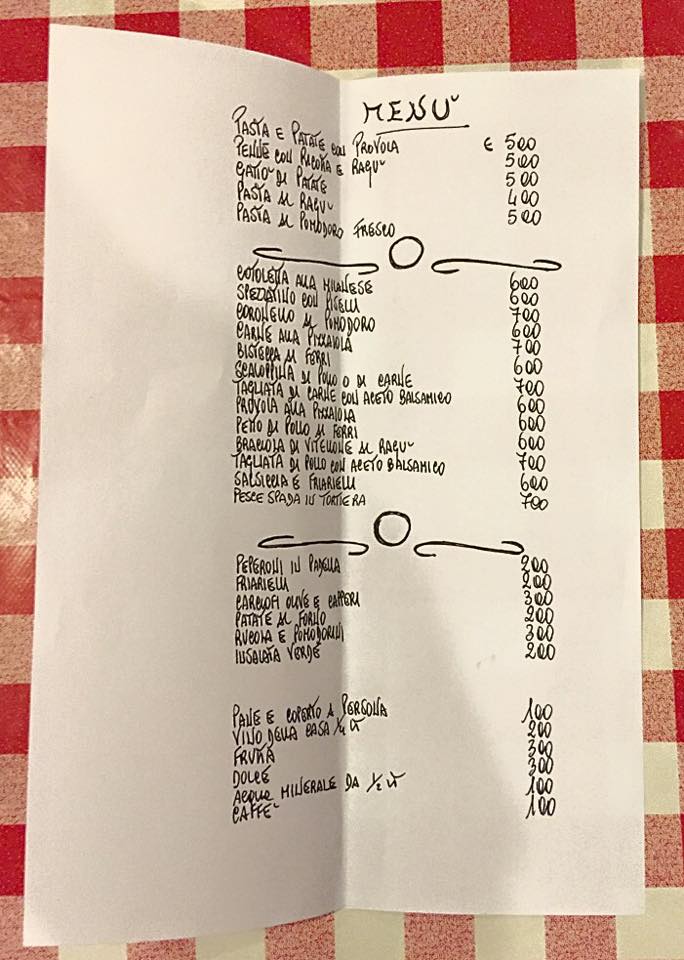 MENU'
PASTA E PATATE CON PROVOLA € 500
PENNE CON RICOTTA E RAGU' 500
GATTO' DI PATATE 500
PASTA AL RAGU' 400
PASTA AL POMODORO FRESCO 500
COTOLETTA ALLA MILANESE 600
SPEZZATINO CON PISELLI 600
CORONELLO AL POMODORO 700
CARNE ALLA PIZZAIOLA 600
BISTECCA AI FERRI 700
SCALOPPINA DI POLLO O DI CARNE 600
TAGLIATA DI CARNE CON ACETO BALSAMICO 700
PROVOLA ALLA PIZZAIOLA 600
PETTO DI POLLO AI FERRI 600
BRACIOLA DI VITELLONE AL RAGU' 600
TAGLIATA DI POLLO CON ACETO BALSAMICO 700
SALSICCIA E FRIARIELLI 600
PESCE SPADA IN TORTIERA 700
PEPERONI IN PADELLA 200
FRIARIELLI 200
CARCIOFI OLIVE E CAPPERI 300
PATATE AL FORNO 200
RUCOLA E POMODORINI 300
INSALATA VERDE 200
PANE E COPERTO A PERSONA 100
VINO DELLA CASA 1/4 LT 200
FRUTTA 300
DOLCE 300
ACQUA MINERALE DA 1/2 LT 100
CAFFE' 100